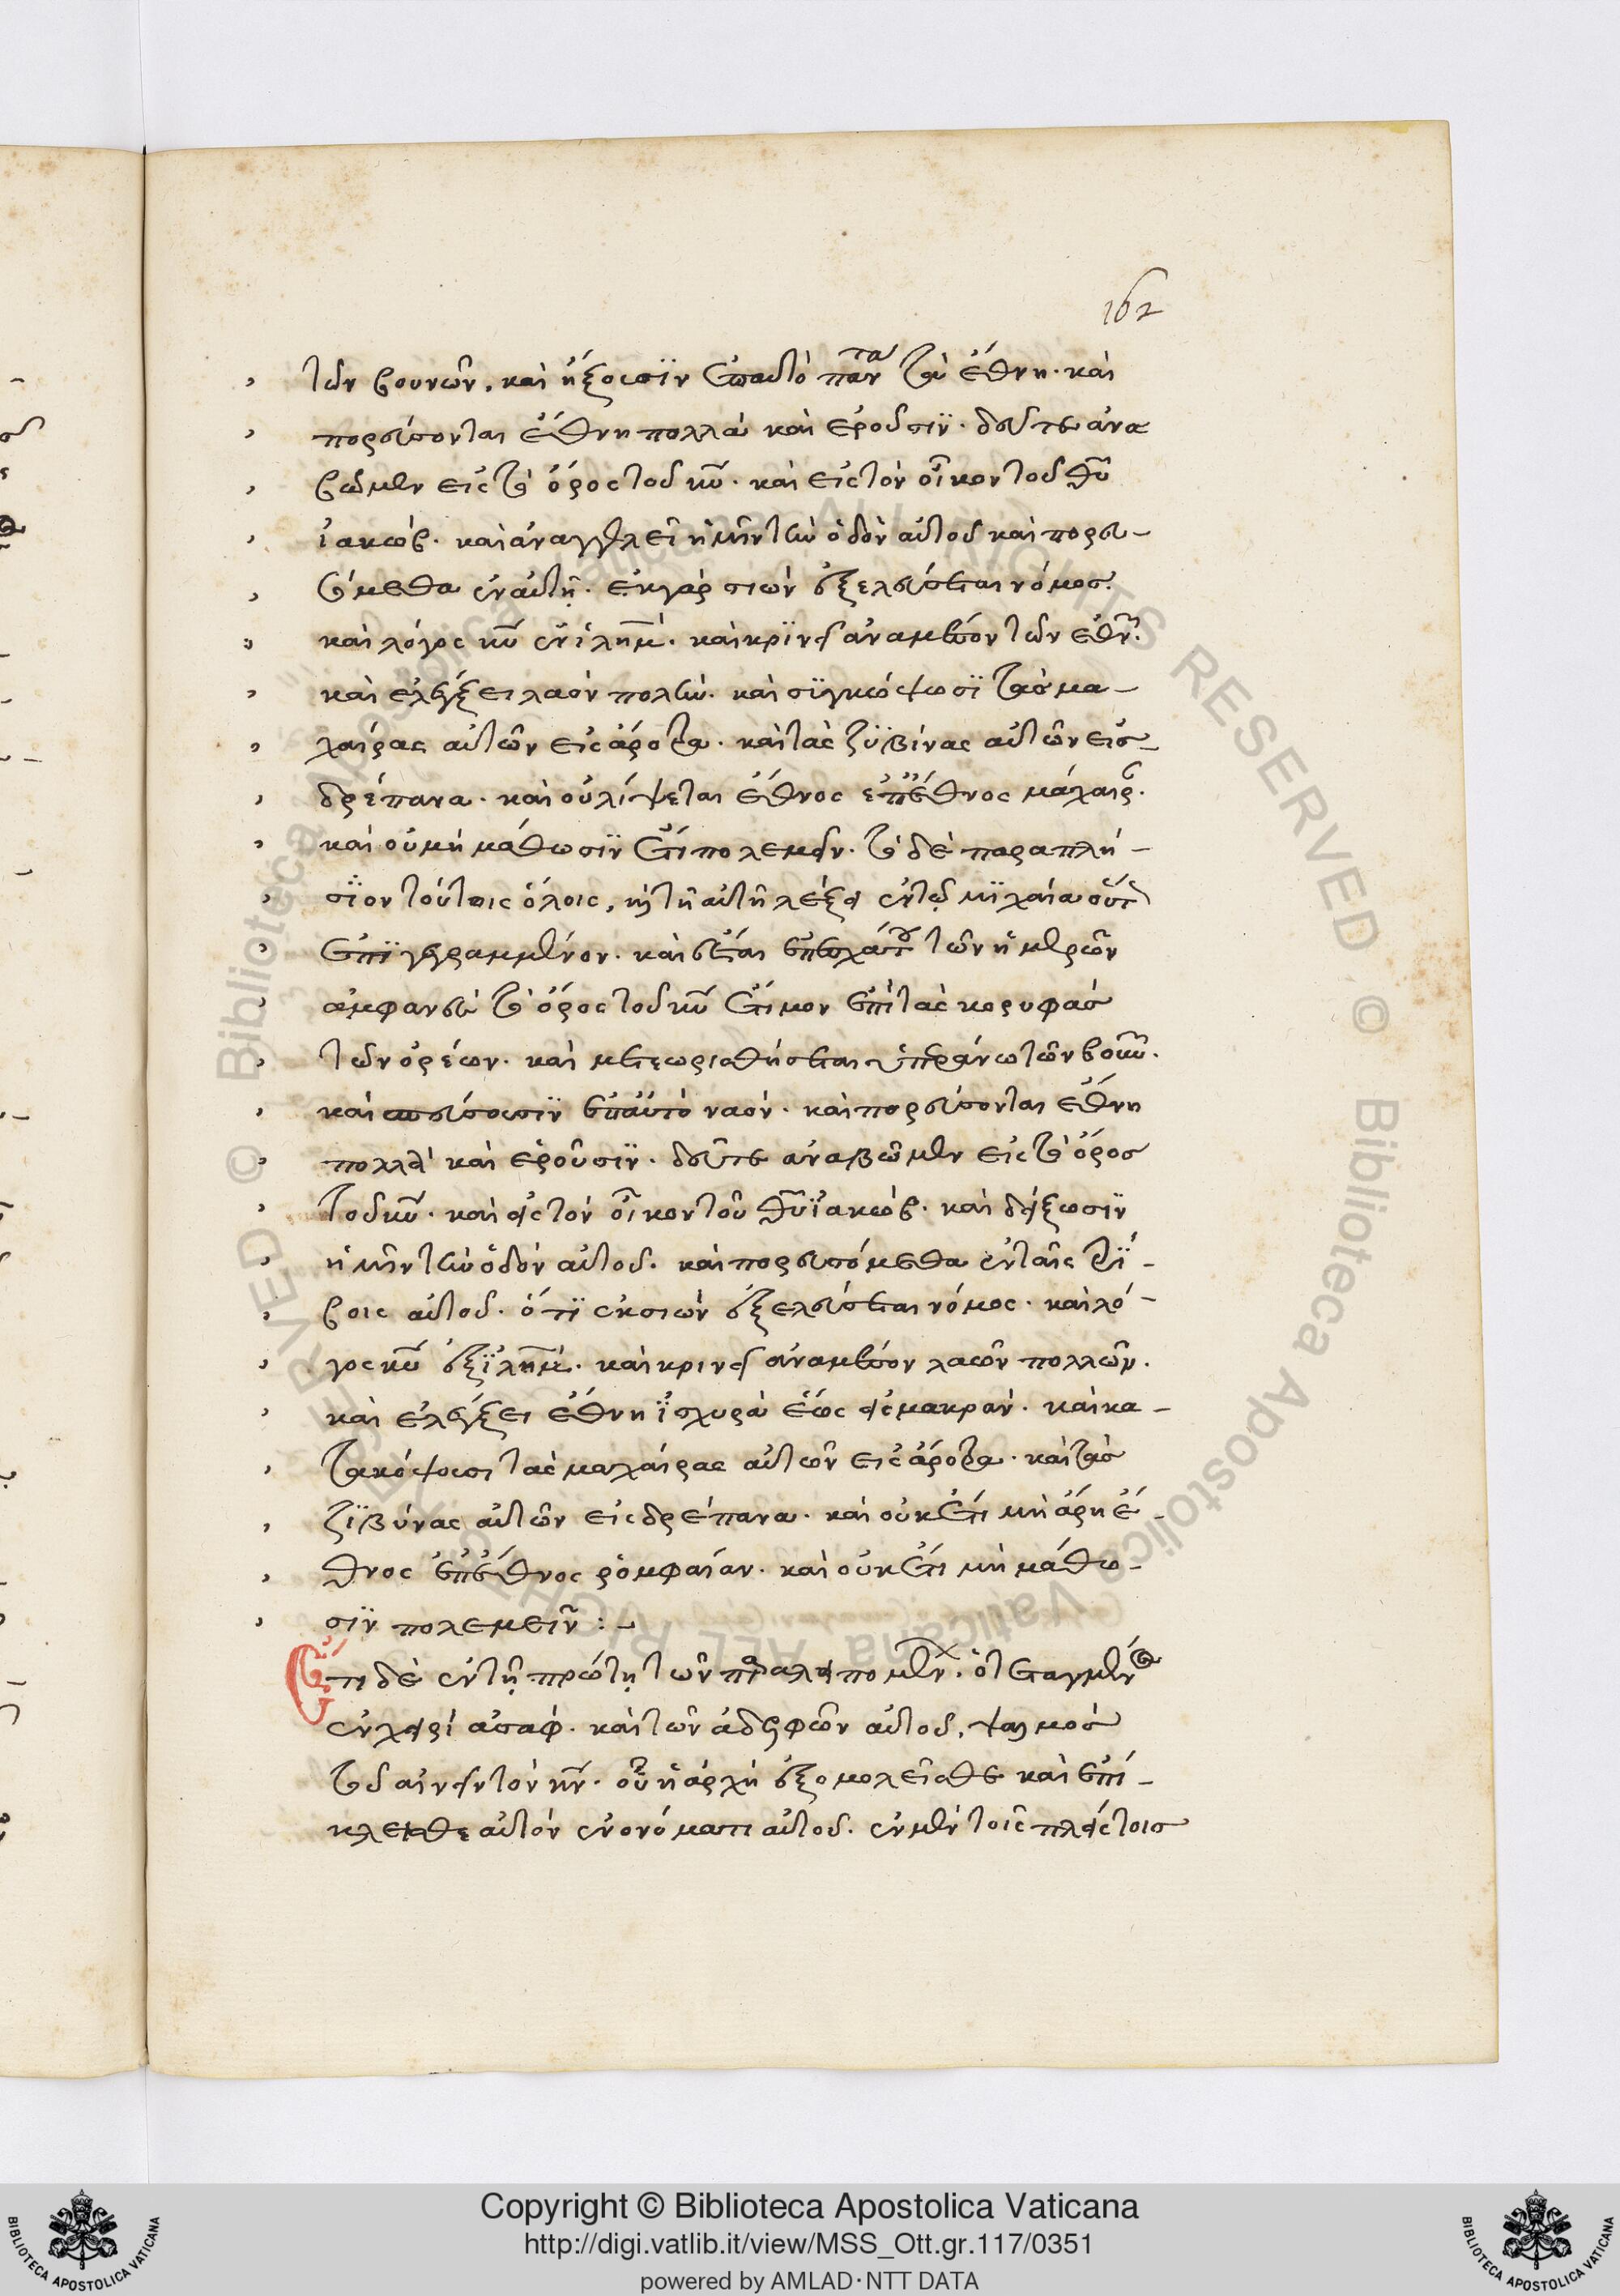 162
τῶν βουνῶν. καὶ ἥξουσϊν ἐπαυτὸ πάντα τὰ ἔθνη. καὶ
πορεύσονται ἔθνη πολλὰ καὶ ἐροῦσϊν. δεῦτε ἀνα
βῶμεν εἰς τὸ ὄρος τοῦ κ̅υ̅. καὶ εἰς τὸν οἶκον τοῦ θ̅υ̅
ἰακώβ. καὶ ἀναγγελεῖ ἡμῖν τὴν ὁδὸν αὐτοῦ καὶ πορευ-
σόμεθα ἐν αὐτῇ. ἐκγὰρ σιὼν ἐξελεύσεται νόμος.
καὶ λόγος κ̅υ̅ ἐν ἱλη̅μ̅. καὶ κρϊνεῖ ἀναμέσον τῶν ἐθν.
καὶ ἐλέγξει λαὸν πολὺν. καὶ σϋγκόψωσϊ τὰς μα-
χαίρας αὐτῶν εἰς ἄροτρα. καὶ τὰς ζϋβίνας αὐτῶν εἰς
δρέπανα. καὶ οὐ λήψεται ἔθνος ἐπ' ἔθνος μάχαιρ.
καὶ οὐ μὴ μάθωσϊν ἔτι πολεμεῖν. τὸ δὲ παραπλή-
σϊον τούτοις ὅλοις, καὶ τῇ αὐτῇ λέξει ἐν τῷ μϊχαία οὕτ
ἐπϊγεγραμμένον. καὶ ἔσται ἐπεσχάτου τῶν ἡμερῶν
ἐμφανὲς τὸ ὄρος τοῦ κ̅υ̅ ἕτιμον ἐπὶ τὰς κορυφὰς
τῶν ὀρέων. καὶ μετεωρισθήσεται ὑπεράνω τῶν βουν.
καὶ σπεύσουσϊν ἐπαὐτὸ ναόν. καὶ πορεύσονται ἔθνη
πολλὰ καὶ ἐροῦσϊν. δεῦτε ἀναβῶμεν εἰς τὸ ὄρος
τοῦ κ̅υ̅. καὶ εἰς τὸν οἶκον τοῦ θ̅υ̅ ἰακώβ. καὶ δείξωσϊν
ἡμῖν τὴν ὁδὸν αὐτοῦ. καὶ πορευσόμεθα ἐν ταῖς τρΐ-
βοις αὐτοῦ. ὅτϊ ἐκ σιὼν ἐξελεύσεται νόμος. καὶ λό-
γος κ̅υ̅ ἐξ ἱλη̅μ̅. καὶ κρινεῖ ἀναμέσον λαῶν πολλῶν.
καὶ ἐλέγξει ἔθνη ἰσχυρὰ ἕως εἰς μακράν. καὶ κα-
τακόψουσι τὰς μαχαίρας αὐτῶν εἰς ἄροτρα. καὶ τὰς
ζϊβύνας αὐτῶν εἰς δρέπανα. καὶ οὐκέτι μὴ ἄρη ἔ-
θνος ἐπ' ἔθνος ῥομφαίαν. καὶ οὐκέτι μὴ μάθω-
σϊν πολεμεῖν :-
Ἔτι δὲ ἐν τῇ πρώτῃ τῶν παραλειπομέν. ὁ τεταγμένος
ἐν χειρὶ ἀσάφ. καὶ τῶν ἀδελφῶν αὐτοῦ, ψαλμὸς
τοῦ αἰνεῖν τὸν κ̅ν̅. οὗ ἡ ἀρχὴ ἐξομολεῖσθε καὶ ἐπι-
κλεῖσθε αὐτὸν ἐν ὀνόματι αὐτοῦ. ἐν μὲν τοῖς πλείστοις
Copyright © Biblioteca Apostolica Vaticana
http://digi.vatlib.it/view/MSS_Ott.gr.117/0351
powered by AMLAD·NTT DATA